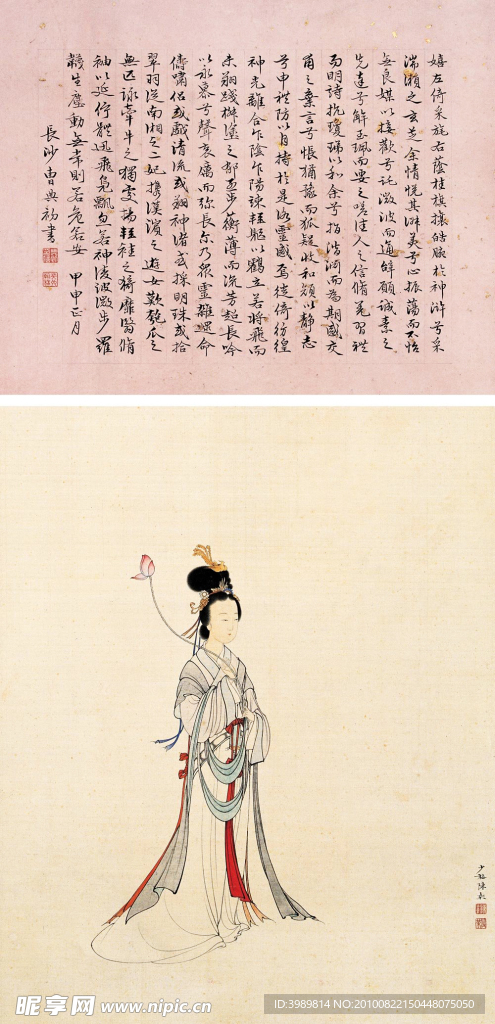 嬉左倚采旄右蔭桂旗攘皓腕於神滸兮采
湍瀨之玄芝余情悅其淑美兮心振蕩而不怡
無良媒以接歡兮託微波而通辭願誠素之
先達兮解玉珮而要之嗟佳人之信脩羌習禮
而明詩抗瓊珶以和余兮指潛淵而為期感交
甫之棄言兮悵猶豫而狐疑收和顏以靜志
兮申禮防以自持於是洛靈感焉徙倚彷徨
神光離合乍陰乍陽竦輕軀以鶴立若將飛而
未翔踐椒塗之郁烈步蘅薄而流芳超長吟
以永慕兮聲哀厲而彌長爾乃眾靈雜遝命
儔嘯侶或戲清流或翔神渚或採明珠或拾
翠羽從南湘之二妃攜漢濱之游女歎匏瓜之
無匹詠牽牛之獨處揚輕袿之猗靡翳脩
袖以延佇體迅飛鳧飄忽若神淩波微步羅
襪生塵動無常則若危若安 甲申正月
長沙曹典初書
少梅陳
昵享网 www.nipic.cn
ID:3989814 NO:20100822150448075050